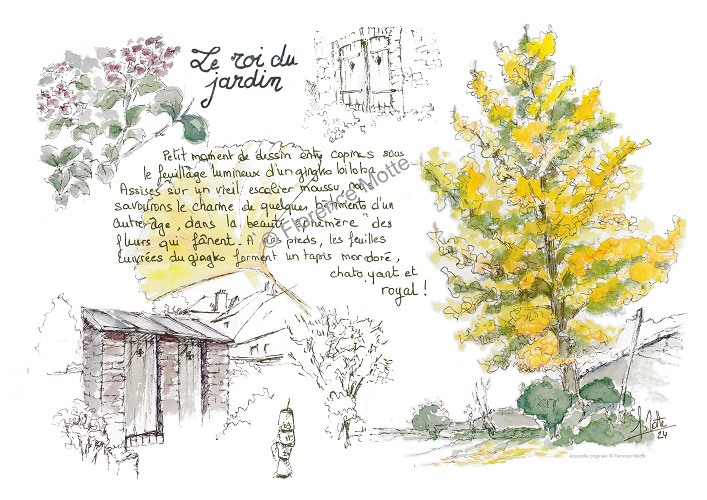 Le roi du
jardin
Petit moment de dessin entre copines sous
le feuillage lumineux d'un gingko biloba.
Assises sur un vieil escalier moussu, nous
savourons le charme de quelques bâtiments d'un
autre âge, dans la beauté éphémère des
fleurs qui fânent. A nos pieds, les feuilles
cuivrées du gingko forment un tapis mordoré,
chatoyant et
royal !
© Florence Motte
24
Aquarelle originale © Florence Motte